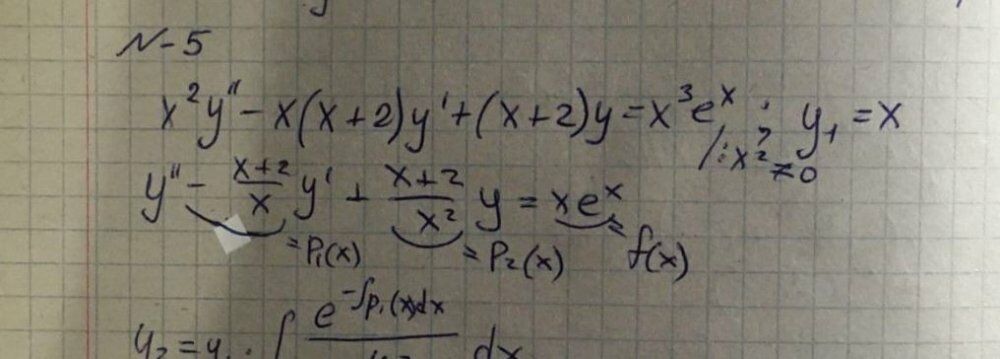 N-5
x²y'' - x(x+2)y' + (x+2)y = x³eˣ ; y₁ = x
/:x² ≠0
y'' - (x+2)/x y' + (x+2)/x² y = xeˣ
= P₁(x) = P₂(x) = f(x)
y₂ = y₁ · ∫ e^(-∫p₁(x)dx) / dx